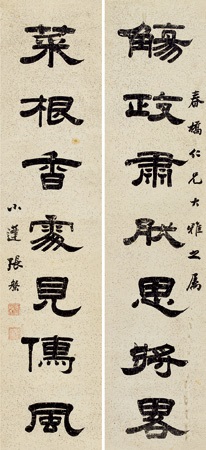 觴政肅思將畧
春橋仁兄大雅之屬
菜根香處見儒風
小蓬張槃